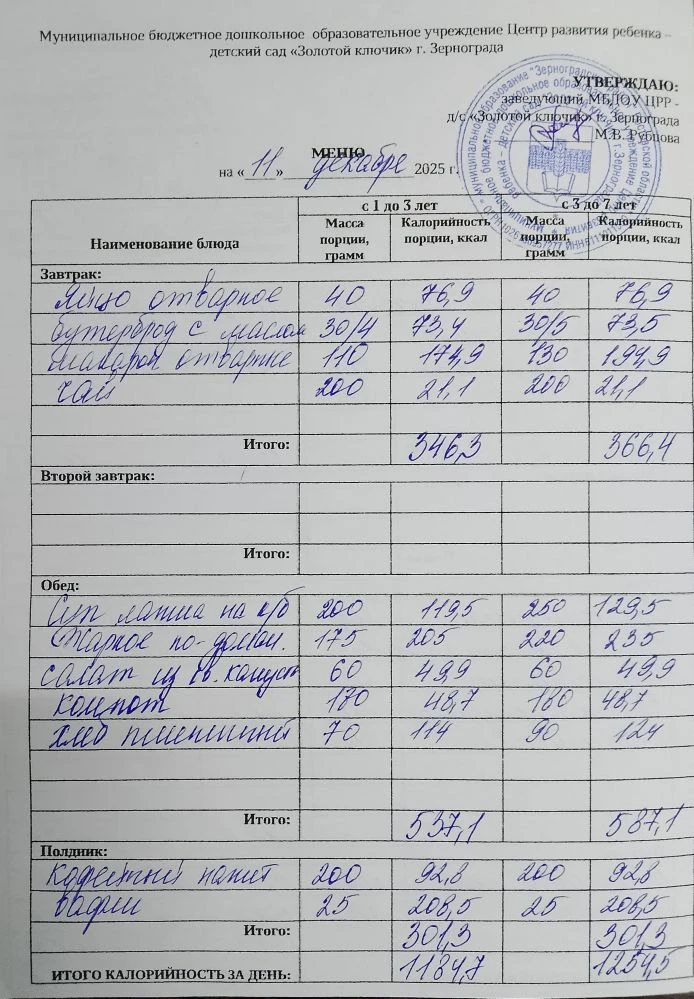 Муниципальное бюджетное дошкольное образовательное учреждение Центр развития ребенка –
детский сад «Золотой ключик» г. Зернограда
УТВЕРЖДАЮ:
заведующий МБДОУ ЦРР -
д/с «Золотой ключик» г. Зернограда
М.В. Рубцова
МЕНЮ
на « 11 » декабре 2025 г.
Наименование блюда с 1 до 3 лет с 3 до 7 лет
Масса порции, грамм Калорийность порции, ккал Масса порции, грамм Калорийность порции, ккал
Завтрак:
Яйцо отварное 40 76,9 40 76,9
бутерброд с маслом 30/4 73,4 30/5 73,5
макарон отварные 110 174,9 130 194,9
чай 200 21,1 200 21,1
Итого: 346,3 366,4
Второй завтрак:
Итого:
Обед:
Суп лапша на к/б 200 119,5 250 129,5
Жаркое по-домаш. 175 205 220 235
салат из св. капуст 60 49,9 60 49,9
компот 180 48,7 180 48,7
хлеб пшеничный 70 114 90 124
Итого: 537,1 587,1
Полдник:
Кофейный напит 200 92,8 200 92,8
вафли 25 208,5 25 208,5
Итого: 301,3 301,3
ИТОГО КАЛОРИЙНОСТЬ ЗА ДЕНЬ: 1184,7 1254,5